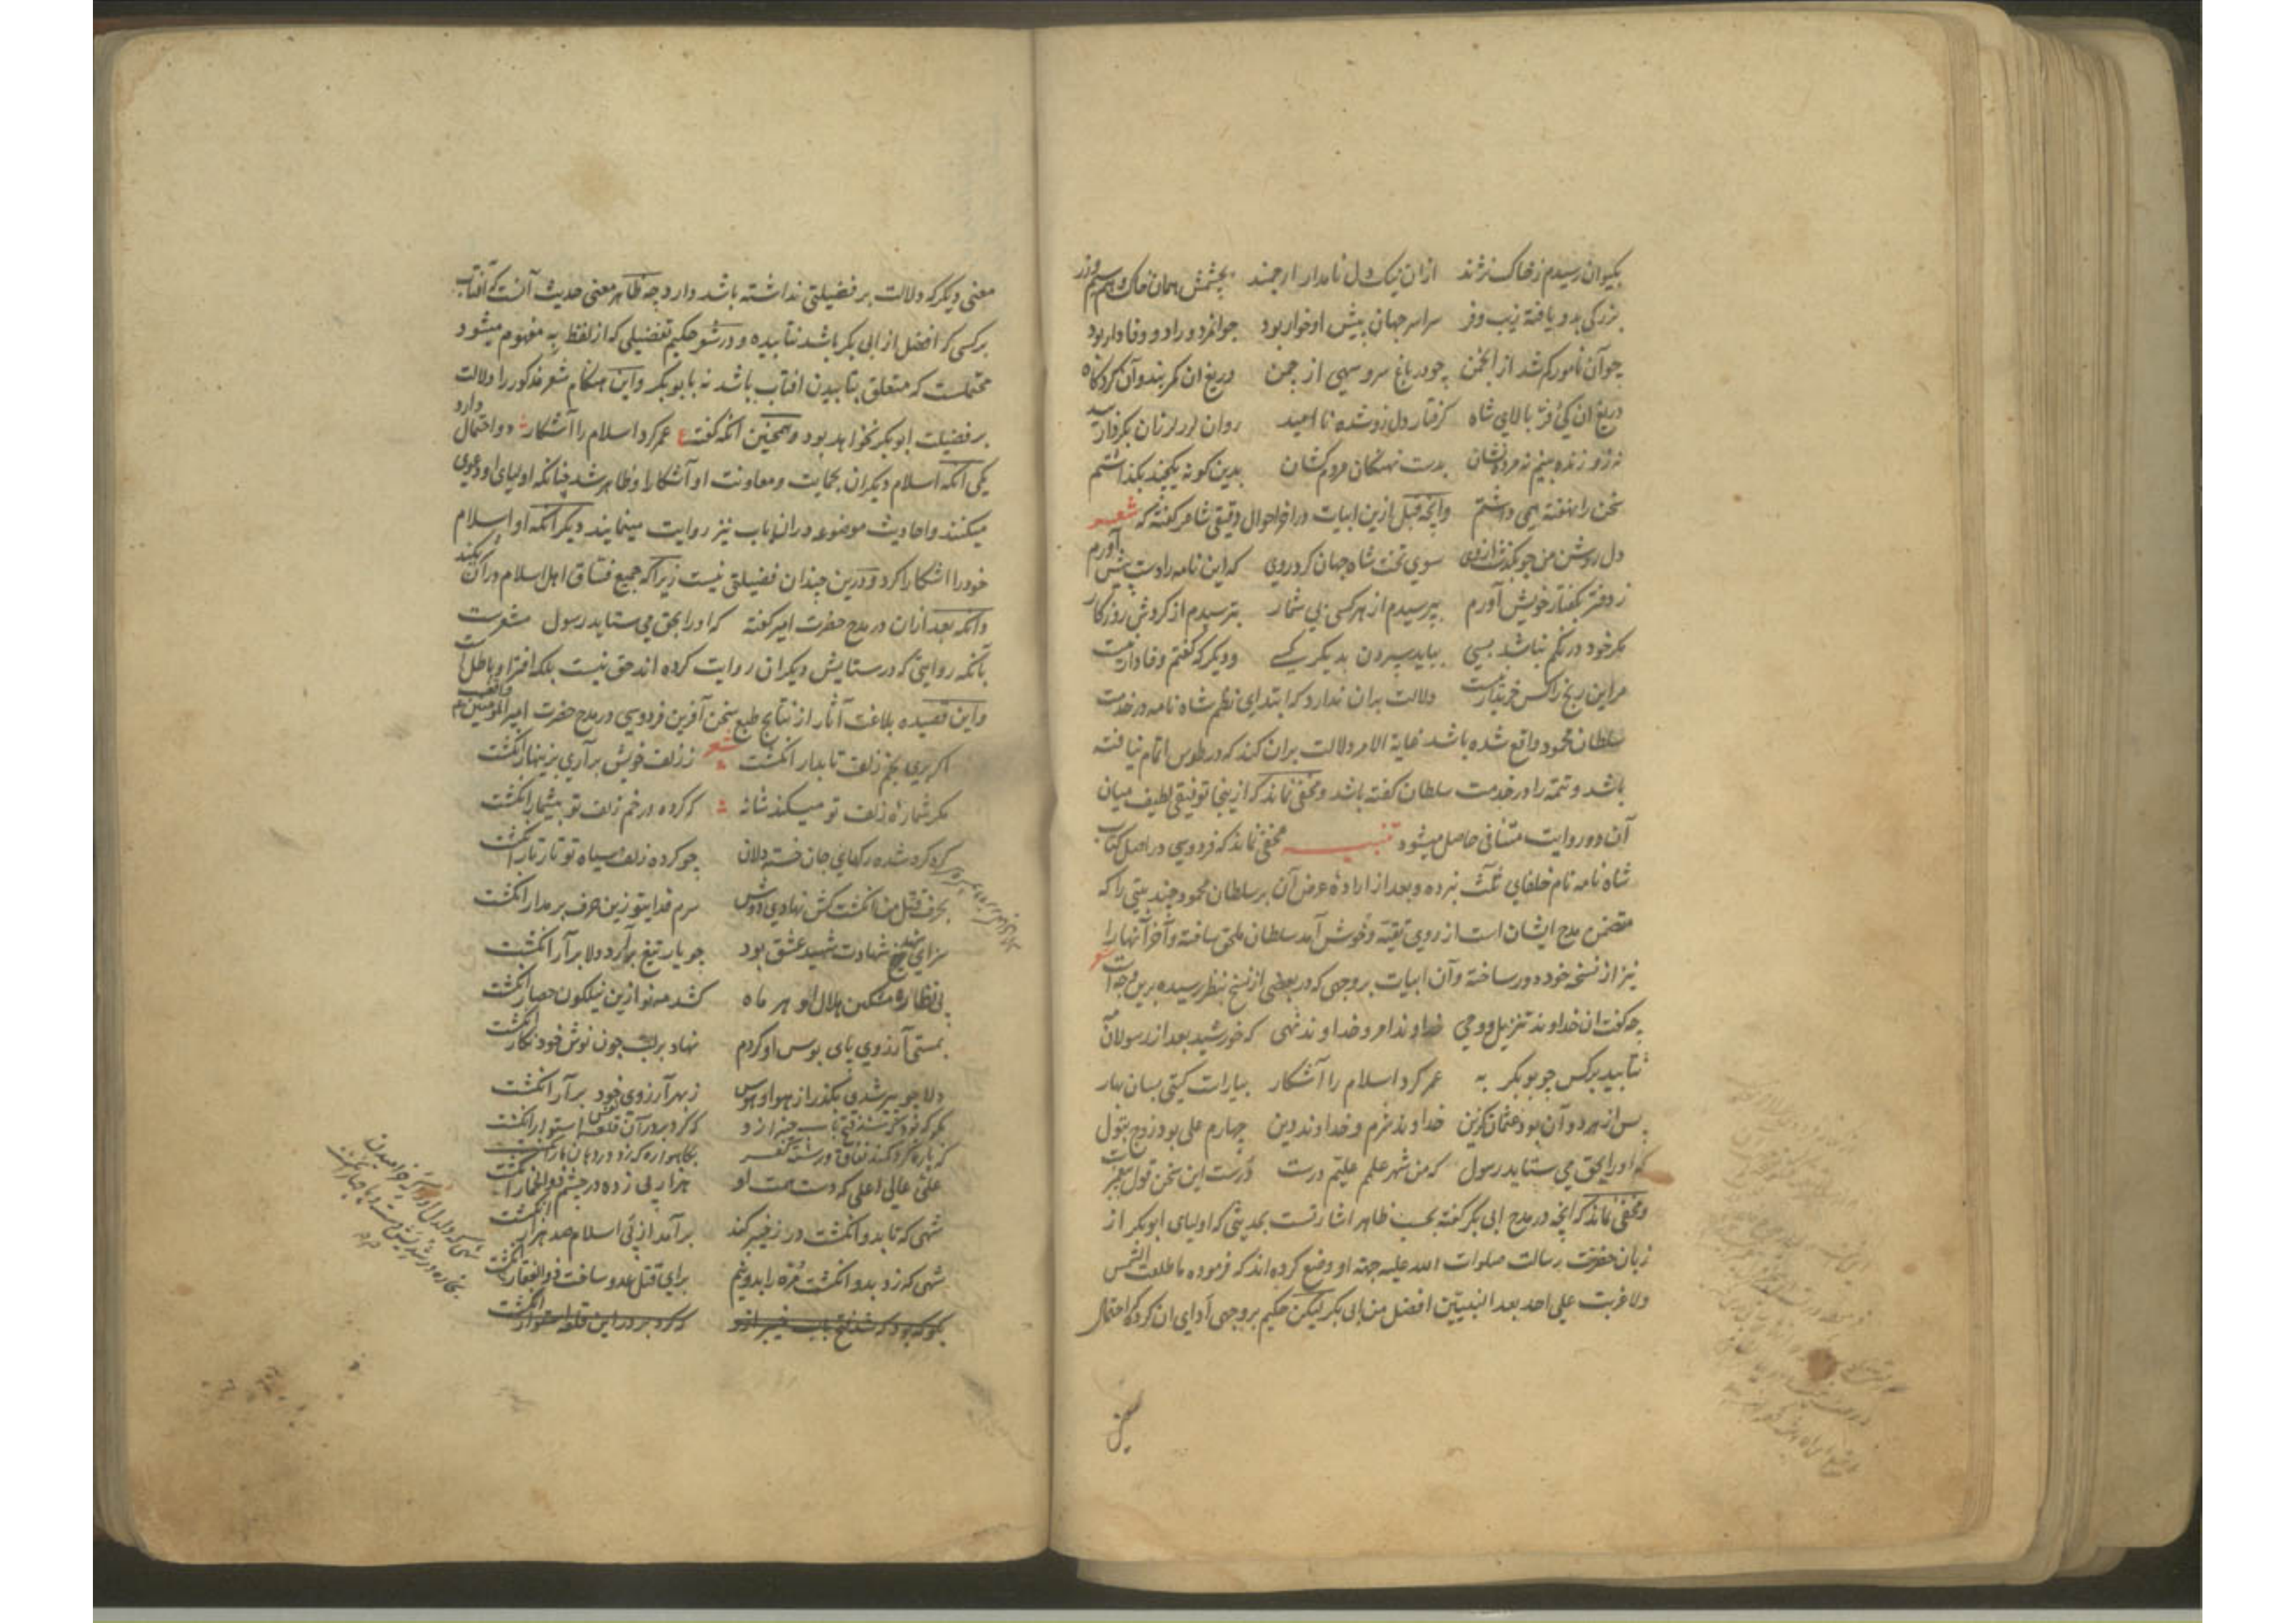 بکیوان رسیدم ز خاک نژند ازان نیک دل نامدار ارجمند بچشمش همان خاک و هم سیم و زر
بزرگی بدو یافته زیب و فر سراسر جهان پیش او خوار بود جوانمرد و راد و وفادار بود
چو آن نامور کم شد از انجمن چو در باغ سرو سهی از چمن دریغ ان کمر بند و آن کردکاه
دریغ ان کیی فر و بالای شاه کرفتار دل زو شده نا امید روان لرز لرزان بکردار بید
نه زو زنده بینم نه مرده نشان بدست نهنکان مردم کشان بدین کونه یکچند بکذاشتم
سخن را نهفته همی داشتم وانچه قبل ازین ابیات در اخر احوال دقیقی شاعر کفته که شعر
دل روشن من چو بکذشت ازوی سوی تخت شاه جهان کرد روی که این نامه را دست پیش آورم
ز دفتر بکفتار خویش آورم بپرسیدم از هر کسی بی شمار بترسیدم از کردش روزکار
مکر خود درنکم نباشد بسی بباید سپردن بدیکر کسی و دیکر که کنجم وفادار نیست
مر این رنج را کس خریدار نیست دلالت بدان ندارد که ابتدای نظم شاه نامه در خدمت
سلطان محمود واقع شده باشد غایة الامر دلالت بران کند که در طوس اتمام نیافته
باشد و تتمه را در خدمت سلطان کفته باشد و مخفی نماند که ازینجا توفیقی لطیف میان
آن دو روایت متنافی حاصل میشود تنبیه مخفی نماند که فردوسی در اصل کتاب
شاه نامه نام خلفای ثلث نبرده و بعد از اراده عرض آن بر سلطان محمود چند بیتی را که
متضمن مدح ایشان است از روی تقیه و خوش آمد سلطان ملحق ساخته و آخر آنها را
نیز از نسخه خود دور ساخته و آن ابیات بر وجهی که در بعضی از نسخ بنظر رسیده برین وجه است شعر
چه کفت ان خداوند تنزیل و وحی خداوند امر و خداوند نهی که خورشید بعد از رسولان
نتابید بر کس چو بوبکر به عمر کرد اسلام را آشکار بیاراست کیتی بسان بهار
پس از هر دو آن بود عثمان کزین خداوند شرم و خداوند دین چهارم علی بود زوج بتول
که او را بحق می ستاید رسول که من شهر علمم علیم درست درست این سخن قول پیغمبرست
و مخفی نماند که انچه در مدح ابی بکر کفته بحسب ظاهر اشارتست بحدیثی که اولیای ابوبکر از
زبان حضرت رسالت صلوات الله علیه جهة او وضع کرده اند که فرموده ما طلعت الشمس
ولا غربت علی احد بعد النبیین افضل من ابی بکر لیکن حکیم بر وجهی ادای ان کرده که احتمال
معنی دیکر که دلالت بر فضیلتی نداشته باشد دارد چه ظاهر معنی حدیث آنست که آفتاب
بر کسی که افضل از ابی بکر باشد نتابیده و در شعر حکیم تفضیلی که از لفظ به مفهوم میشود
محتملست که متعلق بتابیدن افتاب باشد نه بابوبکر و این هنکام شعر مذکور را دلالت
بر فضیلت ابوبکر نخواهد بود و همچنین انکه کفته ع عمر کرد اسلام را آشکار دو احتمال دارد
یکی آنکه اسلام دیکران بحمایت و معاونت او آشکارا و ظاهر شد چنانکه اولیای او دعوی
میکنند و احادیث موضوعه دران باب نیز روایت مینمایند دیکر آنکه او اسلام
خود را اشکارا کرد و درین چندان فضیلتی نیست زیرا که جمیع فساق اهل اسلام دران شریکند
وانکه بعد ازان در مدح حضرت امیر کفته که او را بحق می ستاید رسول مشعرست
بآنکه روایتی که در ستایش دیکران روایت کرده اند حق نیست بلکه افترا و باطل است
و این قصیده بلاغت آثار از نتایج طبع سخن آفرین فردوسی در مدح حضرت امیرالمؤمنین واقعست
شعر
اکر بری بخم زلف تابدار انکشت ز زلف خویش بر آری بزینهار انکشت
مکر شماره زلف تو میکند شانه که کرده در خم زلف تو بیشمار انکشت
کره کره شده رکهای جان خسته دلان چو کرده زلف سیاه تو تار تار انکشت
بحرف قتل من انکشت کش نهادی دوش سرم فدای تو زین حرف بر مدار انکشت
سزای تیغ شهادت شهید عشق بود چو یار تیغ برآرد دلا برآر انکشت
بی نظاره مشکین هلال او هر ماه کشد مه نو ازین نیلکون حصار انکشت
بمستی آرزوی پای بوس او کردم نهاد بر لب چون نوش خود نکار انکشت
دلا چو پیر شدی بکذر از هوا و هوس ز بهر آرزوی خود برآر انکشت
که کرد بر در آن قلعه استوار انکشت
علی عالی اعلی که دست همت او هزار پی زده در چشم ذوالخمار انکشت
شهی که تا بدو انکشت در ز خیبر کند برآمد از پی اسلام صد هزار انکشت
شهی که زد بدو انکشت مره را بدو نیم برای قتل عدو ساخت ذوالفقار انکشت
بکو که بود که شد فتح باب خیبر ازو که کرد بر در این قلعه استوار انکشت